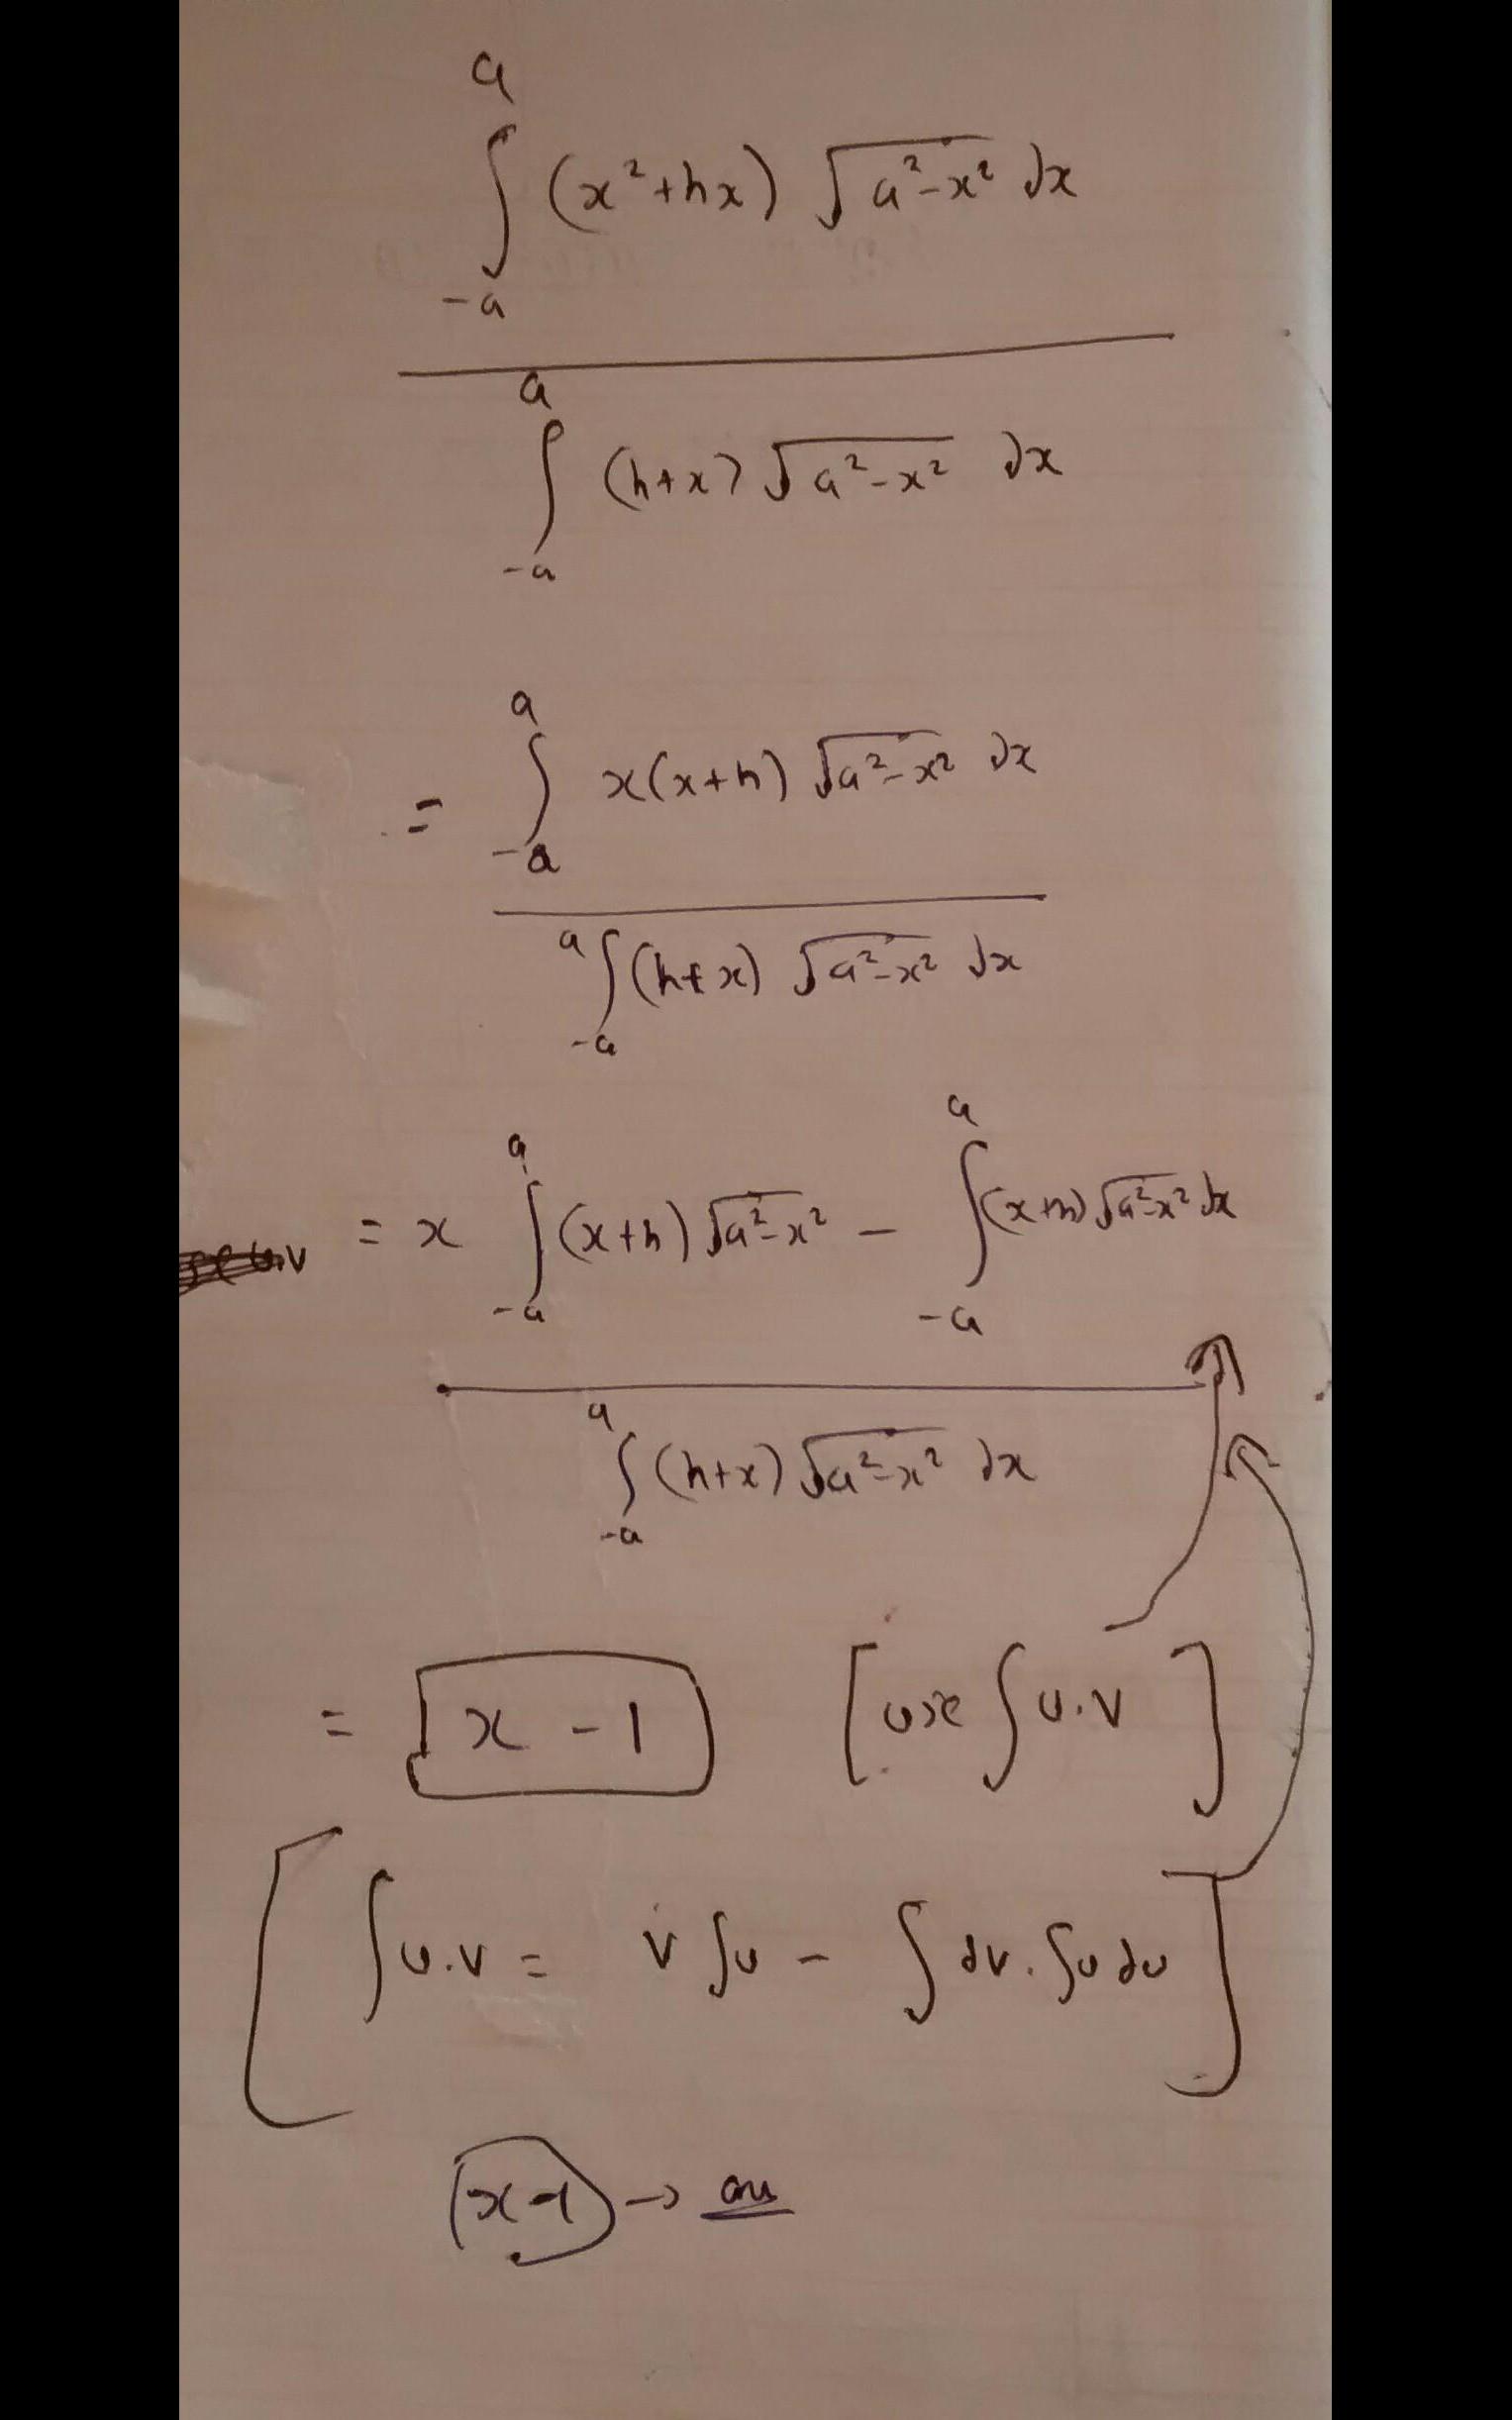 a
∫ (x²+hx) √a²-x² dx
-a
a
∫ (h+x) √a²-x² dx
-a
a
= ∫ x(x+h) √a²-x² dx
-a
a
∫ (h+x) √a²-x² dx
-a
a a
= x ∫ (x+h) √a²-x² - ∫ (x+h) √a²-x² dx
-a -a
a
∫ (h+x) √a²-x² dx
-a
= x - 1 [use ∫ u.v ]
[ ∫ u.v = v ∫u - ∫ dv. ∫u du ]
→ ans